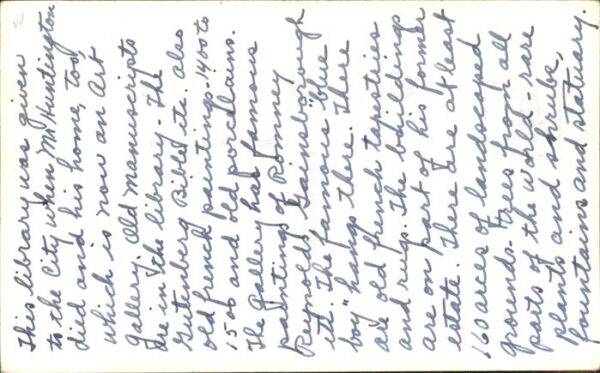 This library was given
to the City when Mr Huntington
died and his home, too,
which is now an Art
gallery. Old manuscripts
are in the library - The
Gutenberg Bible etc. also
old french paintings - 1400 to
1500 and old porcelains.
The Gallery has famous
paintings of Romney
Reynolds Gainsborough
etc. The famous "blue
boy" hangs there. There
are old french tapestries
and rugs. The buildings
are on part of his former
estate. There are at least
160 acres of landscaped
grounds - trees from all
parts of the world - rare
plants and shrubs,
fountains and statuary.
2